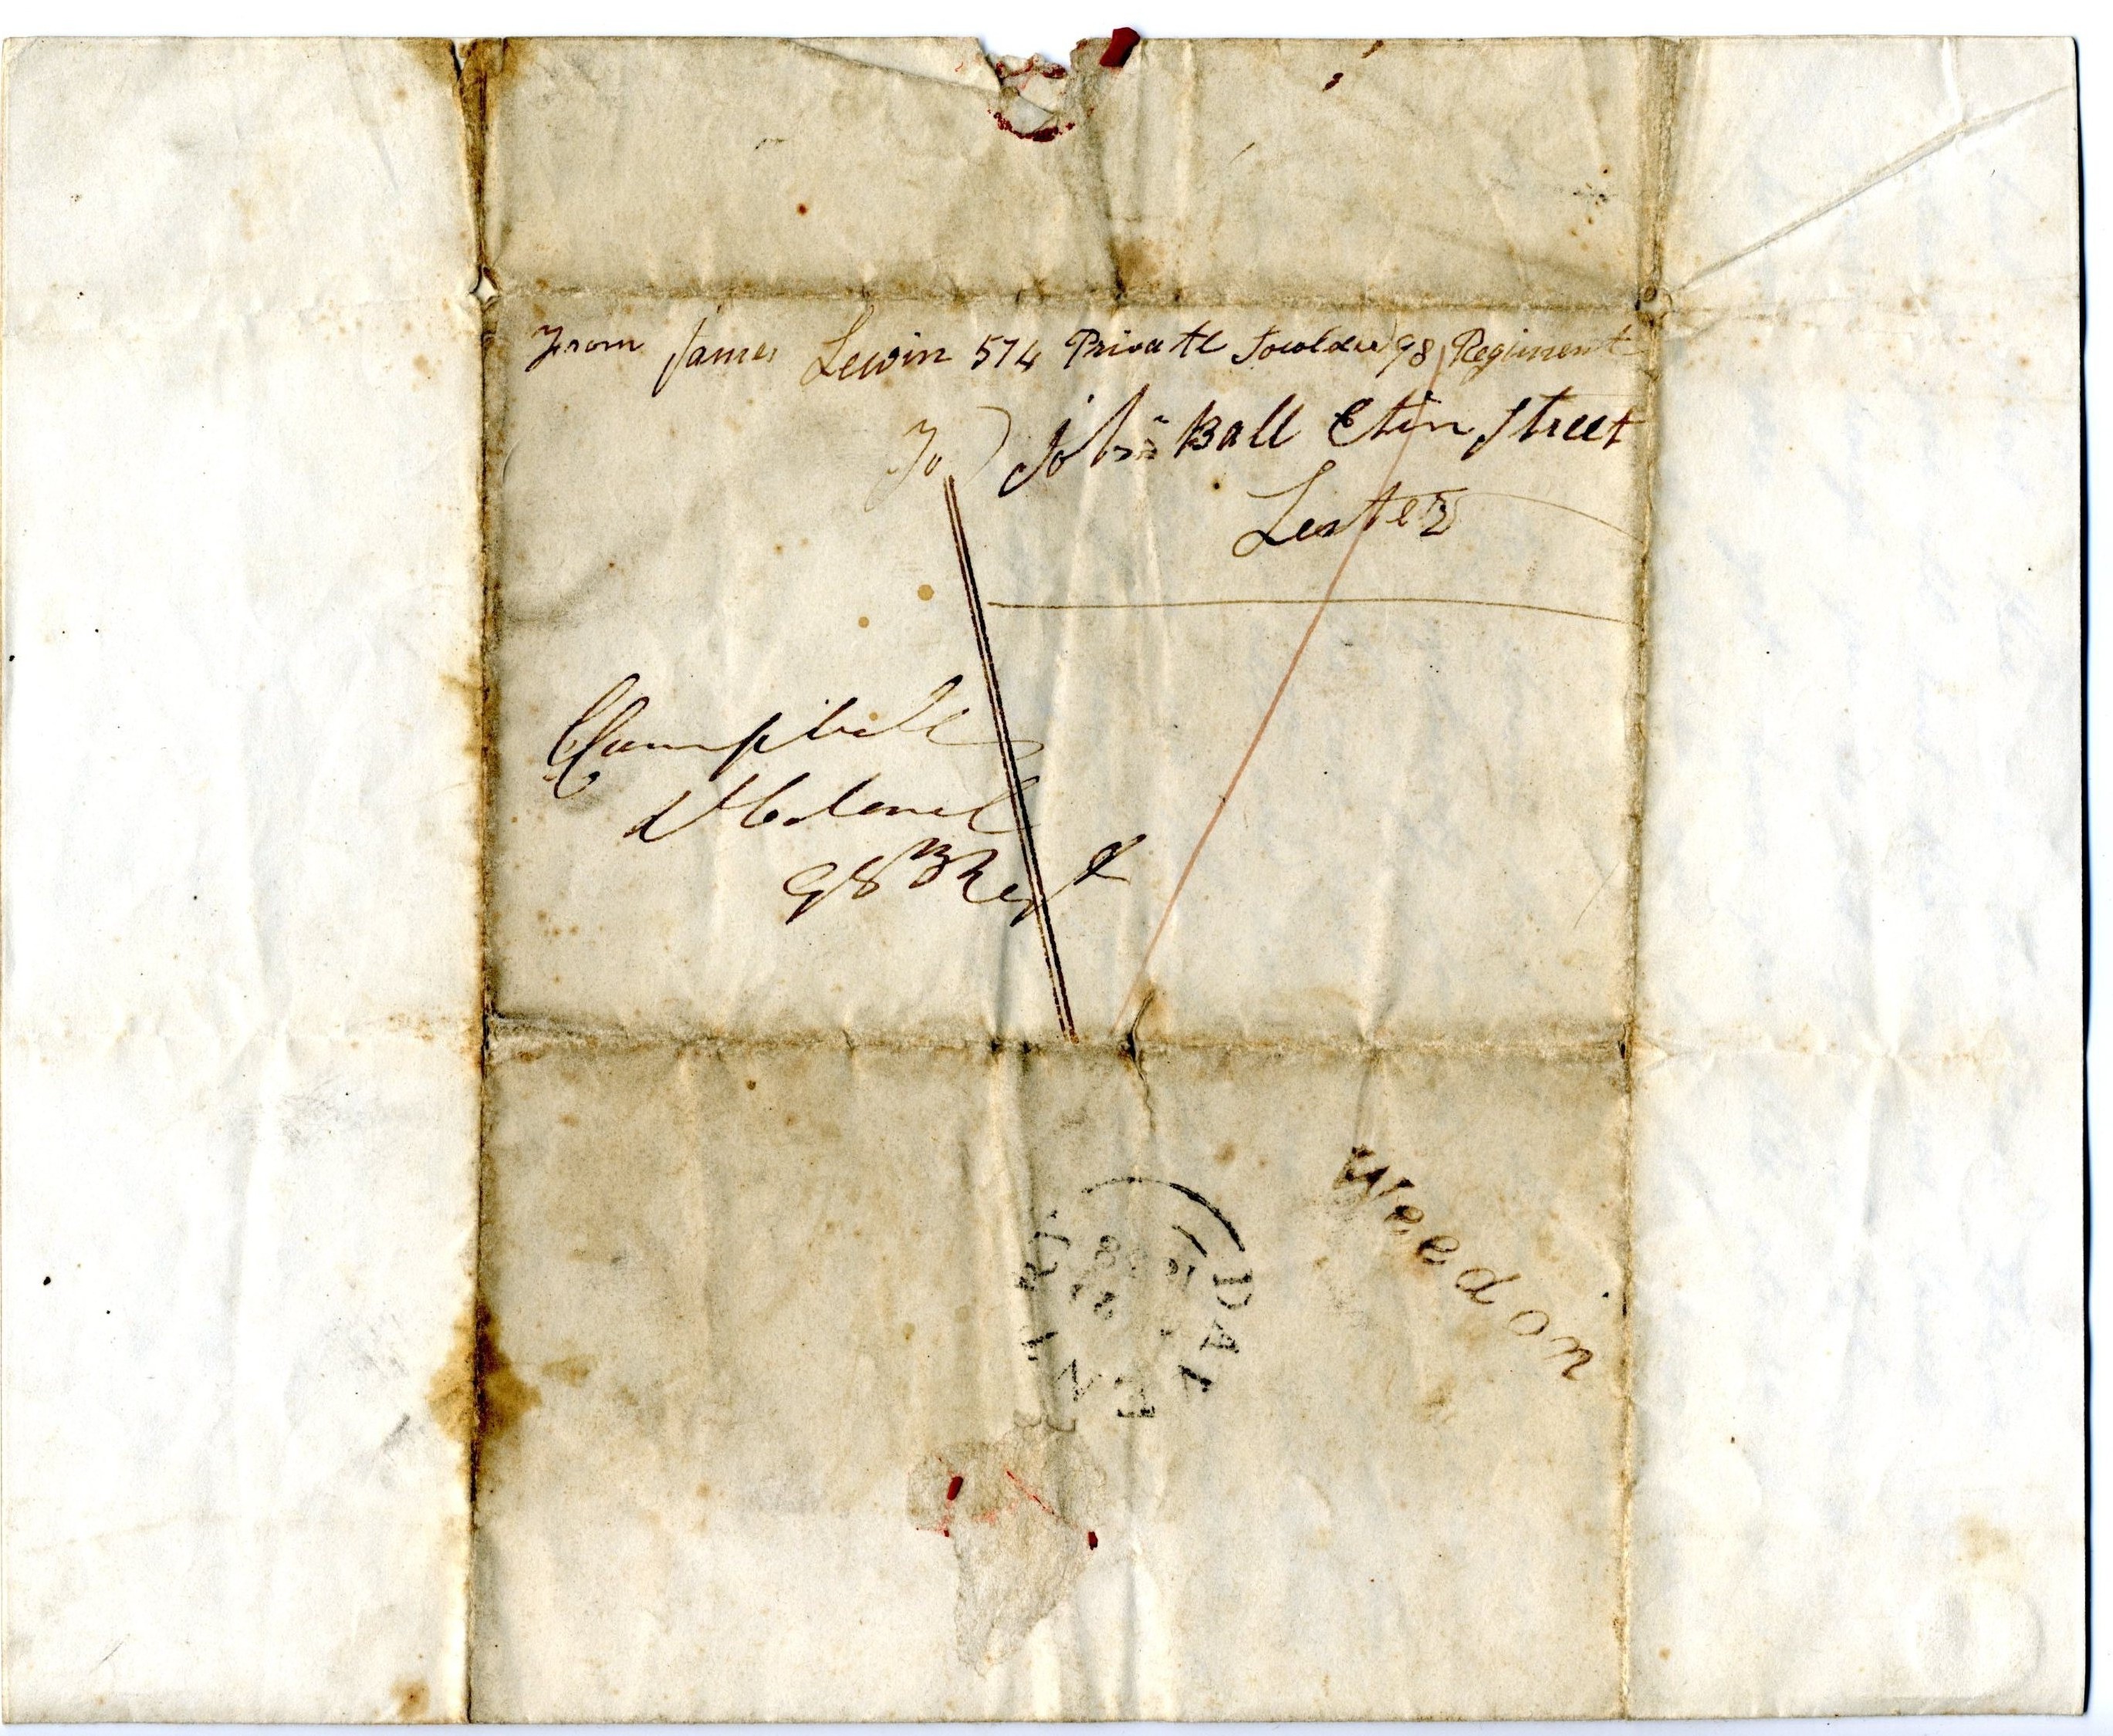 From James Lewin 574 Private Sowldier 98 Regiment
To John Ball Eten Street
Lester
C Campbell
Lt Colonel
98th Regt
Weedon
DAVENTRY